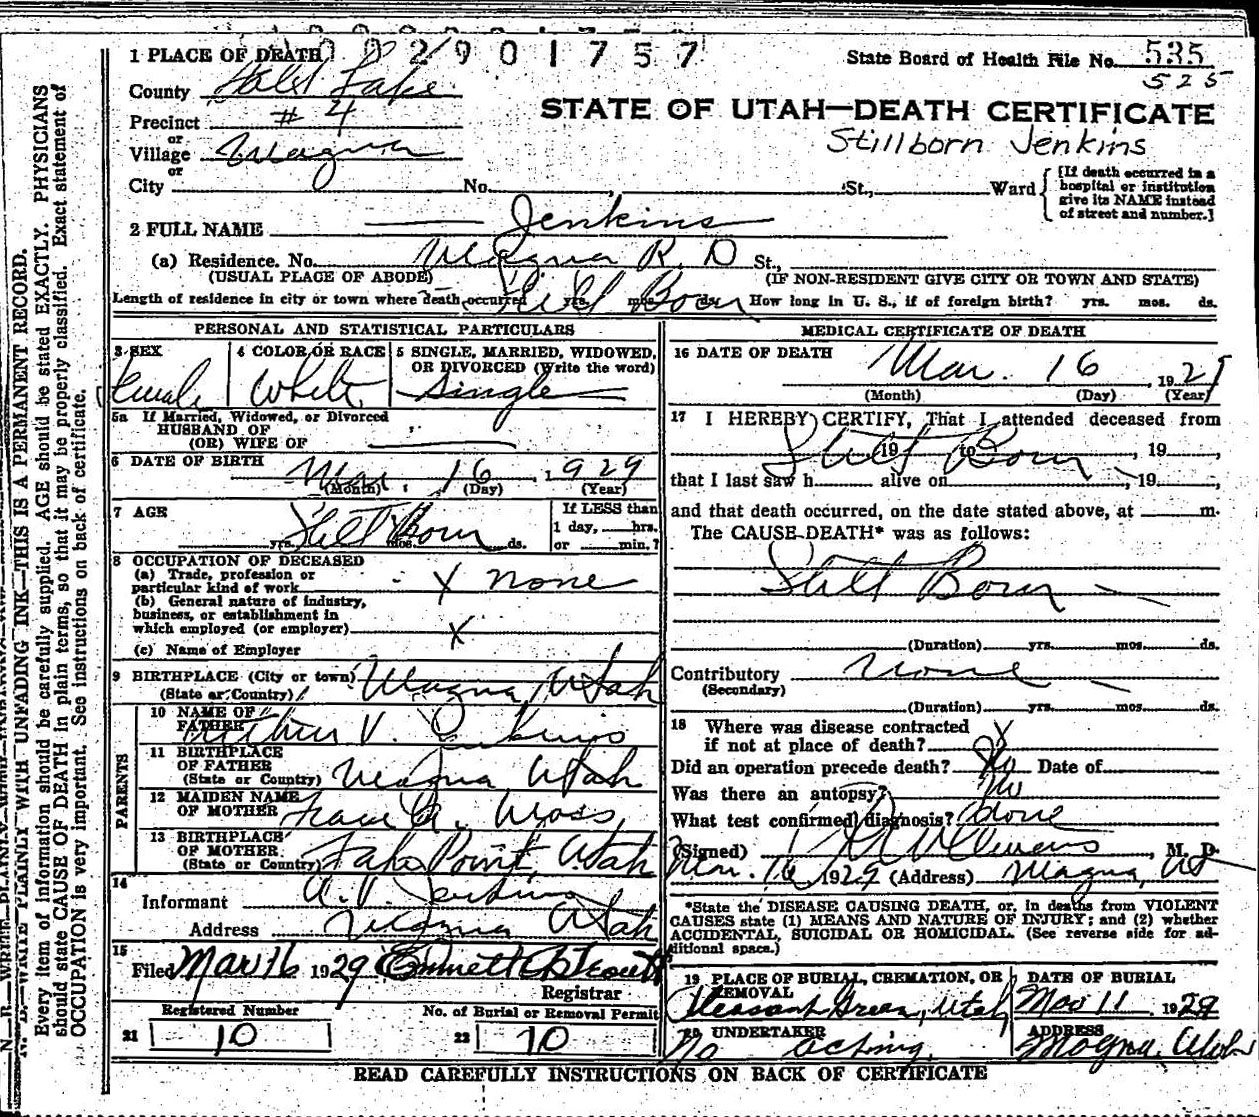 2901757
1 PLACE OF DEATH
State Board of Health File No. 535
525
County Salt Lake
STATE OF UTAH—DEATH CERTIFICATE
Precinct # 4
Stillborn Jenkins
or
Village Magna
or
City No. , St., Ward
[If death occurred in a hospital or institution give its NAME instead of street and number.]
2 FULL NAME Jenkins
(a) Residence. No. Magna R. D St.,
(USUAL PLACE OF ABODE) (IF NON-RESIDENT GIVE CITY OR TOWN AND STATE)
Length of residence in city or town where death occurred yrs. mos. ds. Still Born How long in U. S., if of foreign birth? yrs. mos. ds.
PERSONAL AND STATISTICAL PARTICULARS
3 SEX
Female
4 COLOR OR RACE
White
5 SINGLE, MARRIED, WIDOWED,
OR DIVORCED (Write the word)
Single
5a If Married, Widowed, or Divorced
HUSBAND OF
(OR) WIFE OF
6 DATE OF BIRTH Mar 16, 1929
(Month) (Day) (Year)
7 AGE
Still Born
yrs. mos. ds.
If LESS than
1 day, hrs.
or min.?
8 OCCUPATION OF DECEASED
(a) Trade, profession or
particular kind of work X none
(b) General nature of industry,
business, or establishment in
which employed (or employer) X
(c) Name of Employer
9 BIRTHPLACE (City or town) Magna, Utah
(State or Country)
PARENTS
10 NAME OF
FATHER Arthur V. Jenkins
11 BIRTHPLACE
OF FATHER
(State or Country) Magna Utah
12 MAIDEN NAME
OF MOTHER
13 BIRTHPLACE
OF MOTHER
(State or Country) Lake Point, Utah
14
Informant A. V. Jenkins
Address Magna Utah
15
Filed Mar 16 1929 Emmett
Registrar
Registered Number
21 10
No. of Burial or Removal Permit
22 10
MEDICAL CERTIFICATE OF DEATH
16 DATE OF DEATH Mar. 16, 1929
(Month) (Day) (Year)
17 I HEREBY CERTIFY, That I attended deceased from
, 19 to , 19 ,
Still Born
that I last saw h alive on , 19 ,
and that death occurred, on the date stated above, at m.
The CAUSE DEATH* was as follows:
Still Born
(Duration) yrs. mos. ds.
Contributory None
(Secondary)
(Duration) yrs. mos. ds.
18 Where was disease contracted
if not at place of death? X
Did an operation precede death? No Date of
Was there an autopsy? No
What test confirmed diagnosis?
(Signed) M. D.
Mar. 16, 1929 (Address) Magna, Ut
*State the DISEASE CAUSING DEATH, or, in deaths from VIOLENT
CAUSES state (1) MEANS AND NATURE OF INJURY; and (2) whether
ACCIDENTAL, SUICIDAL OR HOMICIDAL. (See reverse side for ad-
ditional space.)
19 PLACE OF BURIAL, CREMATION, OR
REMOVAL
Pleasant Green, Utah
DATE OF BURIAL
11 1929
20 UNDERTAKER
No acting.
ADDRESS
Magna, Utah
READ CAREFULLY INSTRUCTIONS ON BACK OF CERTIFICATE
N. B.—WRITE PLAINLY WITH UNFADING INK—THIS IS A PERMANENT RECORD.
Every item of information should be carefully supplied. AGE should be stated EXACTLY. PHYSICIANS
should state CAUSE OF DEATH in plain terms, so that it may be properly classified. Exact statement of
OCCUPATION is very important. See instructions on back of certificate.